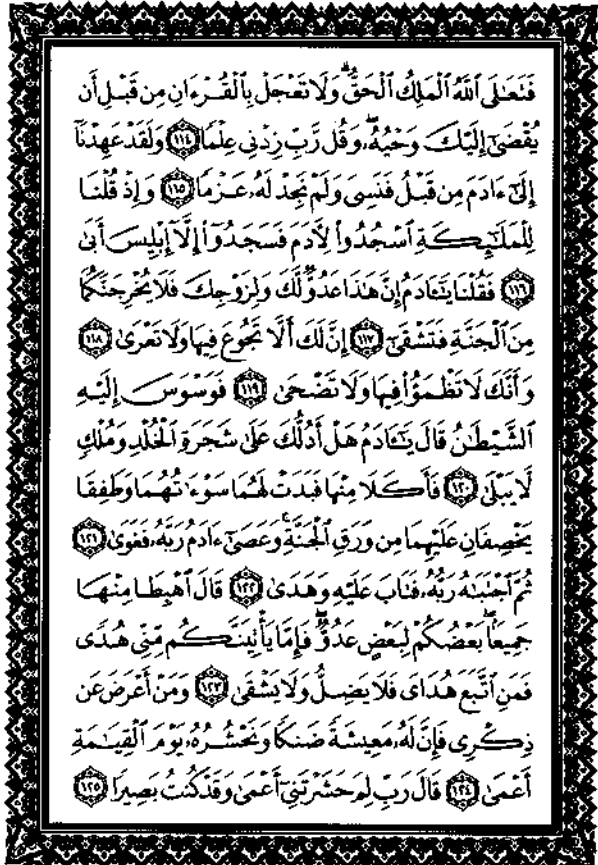 فَتَعَٰلَى ٱللَّهُ ٱلْمَلِكُ ٱلْحَقُّ ۗ وَلَا تَعْجَلْ بِٱلْقُرْءَانِ مِن قَبْلِ أَن
يُقْضَىٰٓ إِلَيْكَ وَحْيُهُۥ ۖ وَقُل رَّبِّ زِدْنِى عِلْمًا ١١٤ وَلَقَدْ عَهِدْنَآ
إِلَىٰٓ ءَادَمَ مِن قَبْلُ فَنَسِىَ وَلَمْ نَجِدْ لَهُۥ عَزْمًا ١١٥ وَإِذْ قُلْنَا
لِلْمَلَٰٓئِكَةِ ٱسْجُدُوا۟ لِءَادَمَ فَسَجَدُوٓا۟ إِلَّآ إِبْلِيسَ أَبَىٰ
١١٦ فَقُلْنَا يَٰٓـَٔادَمُ إِنَّ هَٰذَا عَدُوٌّ لَّكَ وَلِزَوْجِكَ فَلَا يُخْرِجَنَّكُمَا
مِنَ ٱلْجَنَّةِ فَتَشْقَىٰٓ ١١٧ إِنَّ لَكَ أَلَّا تَجُوعَ فِيهَا وَلَا تَعْرَىٰ ١١٨
وَأَنَّكَ لَا تَظْمَؤُا۟ فِيهَا وَلَا تَضْحَىٰ ١١٩ فَوَسْوَسَ إِلَيْهِ
ٱلشَّيْطَٰنُ قَالَ يَٰٓـَٔادَمُ هَلْ أَدُلُّكَ عَلَىٰ شَجَرَةِ ٱلْخُلْدِ وَمُلْكٍ
لَّا يَبْلَىٰ ١٢٠ فَأَكَلَا مِنْهَا فَبَدَتْ لَهُمَا سَوْءَٰتُهُمَا وَطَفِقَا
يَخْصِفَانِ عَلَيْهِمَا مِن وَرَقِ ٱلْجَنَّةِ ۚ وَعَصَىٰٓ ءَادَمُ رَبَّهُۥ فَغَوَىٰ ١٢١
ثُمَّ ٱجْتَبَٰهُ رَبُّهُۥ فَتَابَ عَلَيْهِ وَهَدَىٰ ١٢٢ قَالَ ٱهْبِطَا مِنْهَا
جَمِيعًۢا ۖ بَعْضُكُمْ لِبَعْضٍ عَدُوٌّ ۖ فَإِمَّا يَأْتِيَنَّكُم مِّنِّى هُدًى
فَمَنِ ٱتَّبَعَ هُدَاىَ فَلَا يَضِلُّ وَلَا يَشْقَىٰ ١٢٣ وَمَنْ أَعْرَضَ عَن
ذِكْرِى فَإِنَّ لَهُۥ مَعِيشَةً ضَنكًا وَنَحْشُرُهُۥ يَوْمَ ٱلْقِيَٰمَةِ
أَعْمَىٰ ١٢٤ قَالَ رَبِّ لِمَ حَشَرْتَنِىٓ أَعْمَىٰ وَقَدْ كُنتُ بَصِيرًا ١٢٥